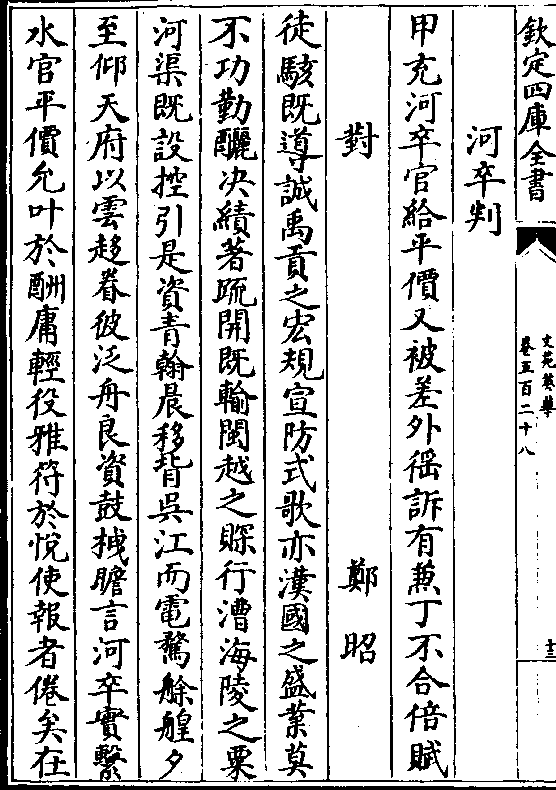 欽定四庫全書
文苑英華
卷五百二十八
十三
河卒判
甲充河卒官給平價又被差外徭訴有兼丁不合倍賦
對 鄭昭
徒駭既導誠禹貢之宏規宣防式歌亦漢國之盛業莫
不功勤釃決績著疏開既輸閩越之賝行漕海陵之粟
河渠既設控引是資青翰晨移背吳江而電騖艅艎夕
至仰天府以雲趍眷彼泛舟良資鼓栧瞻言河卒實繫
水官平價允叶於酬庸輕役雅符於悅使報者倦矣在